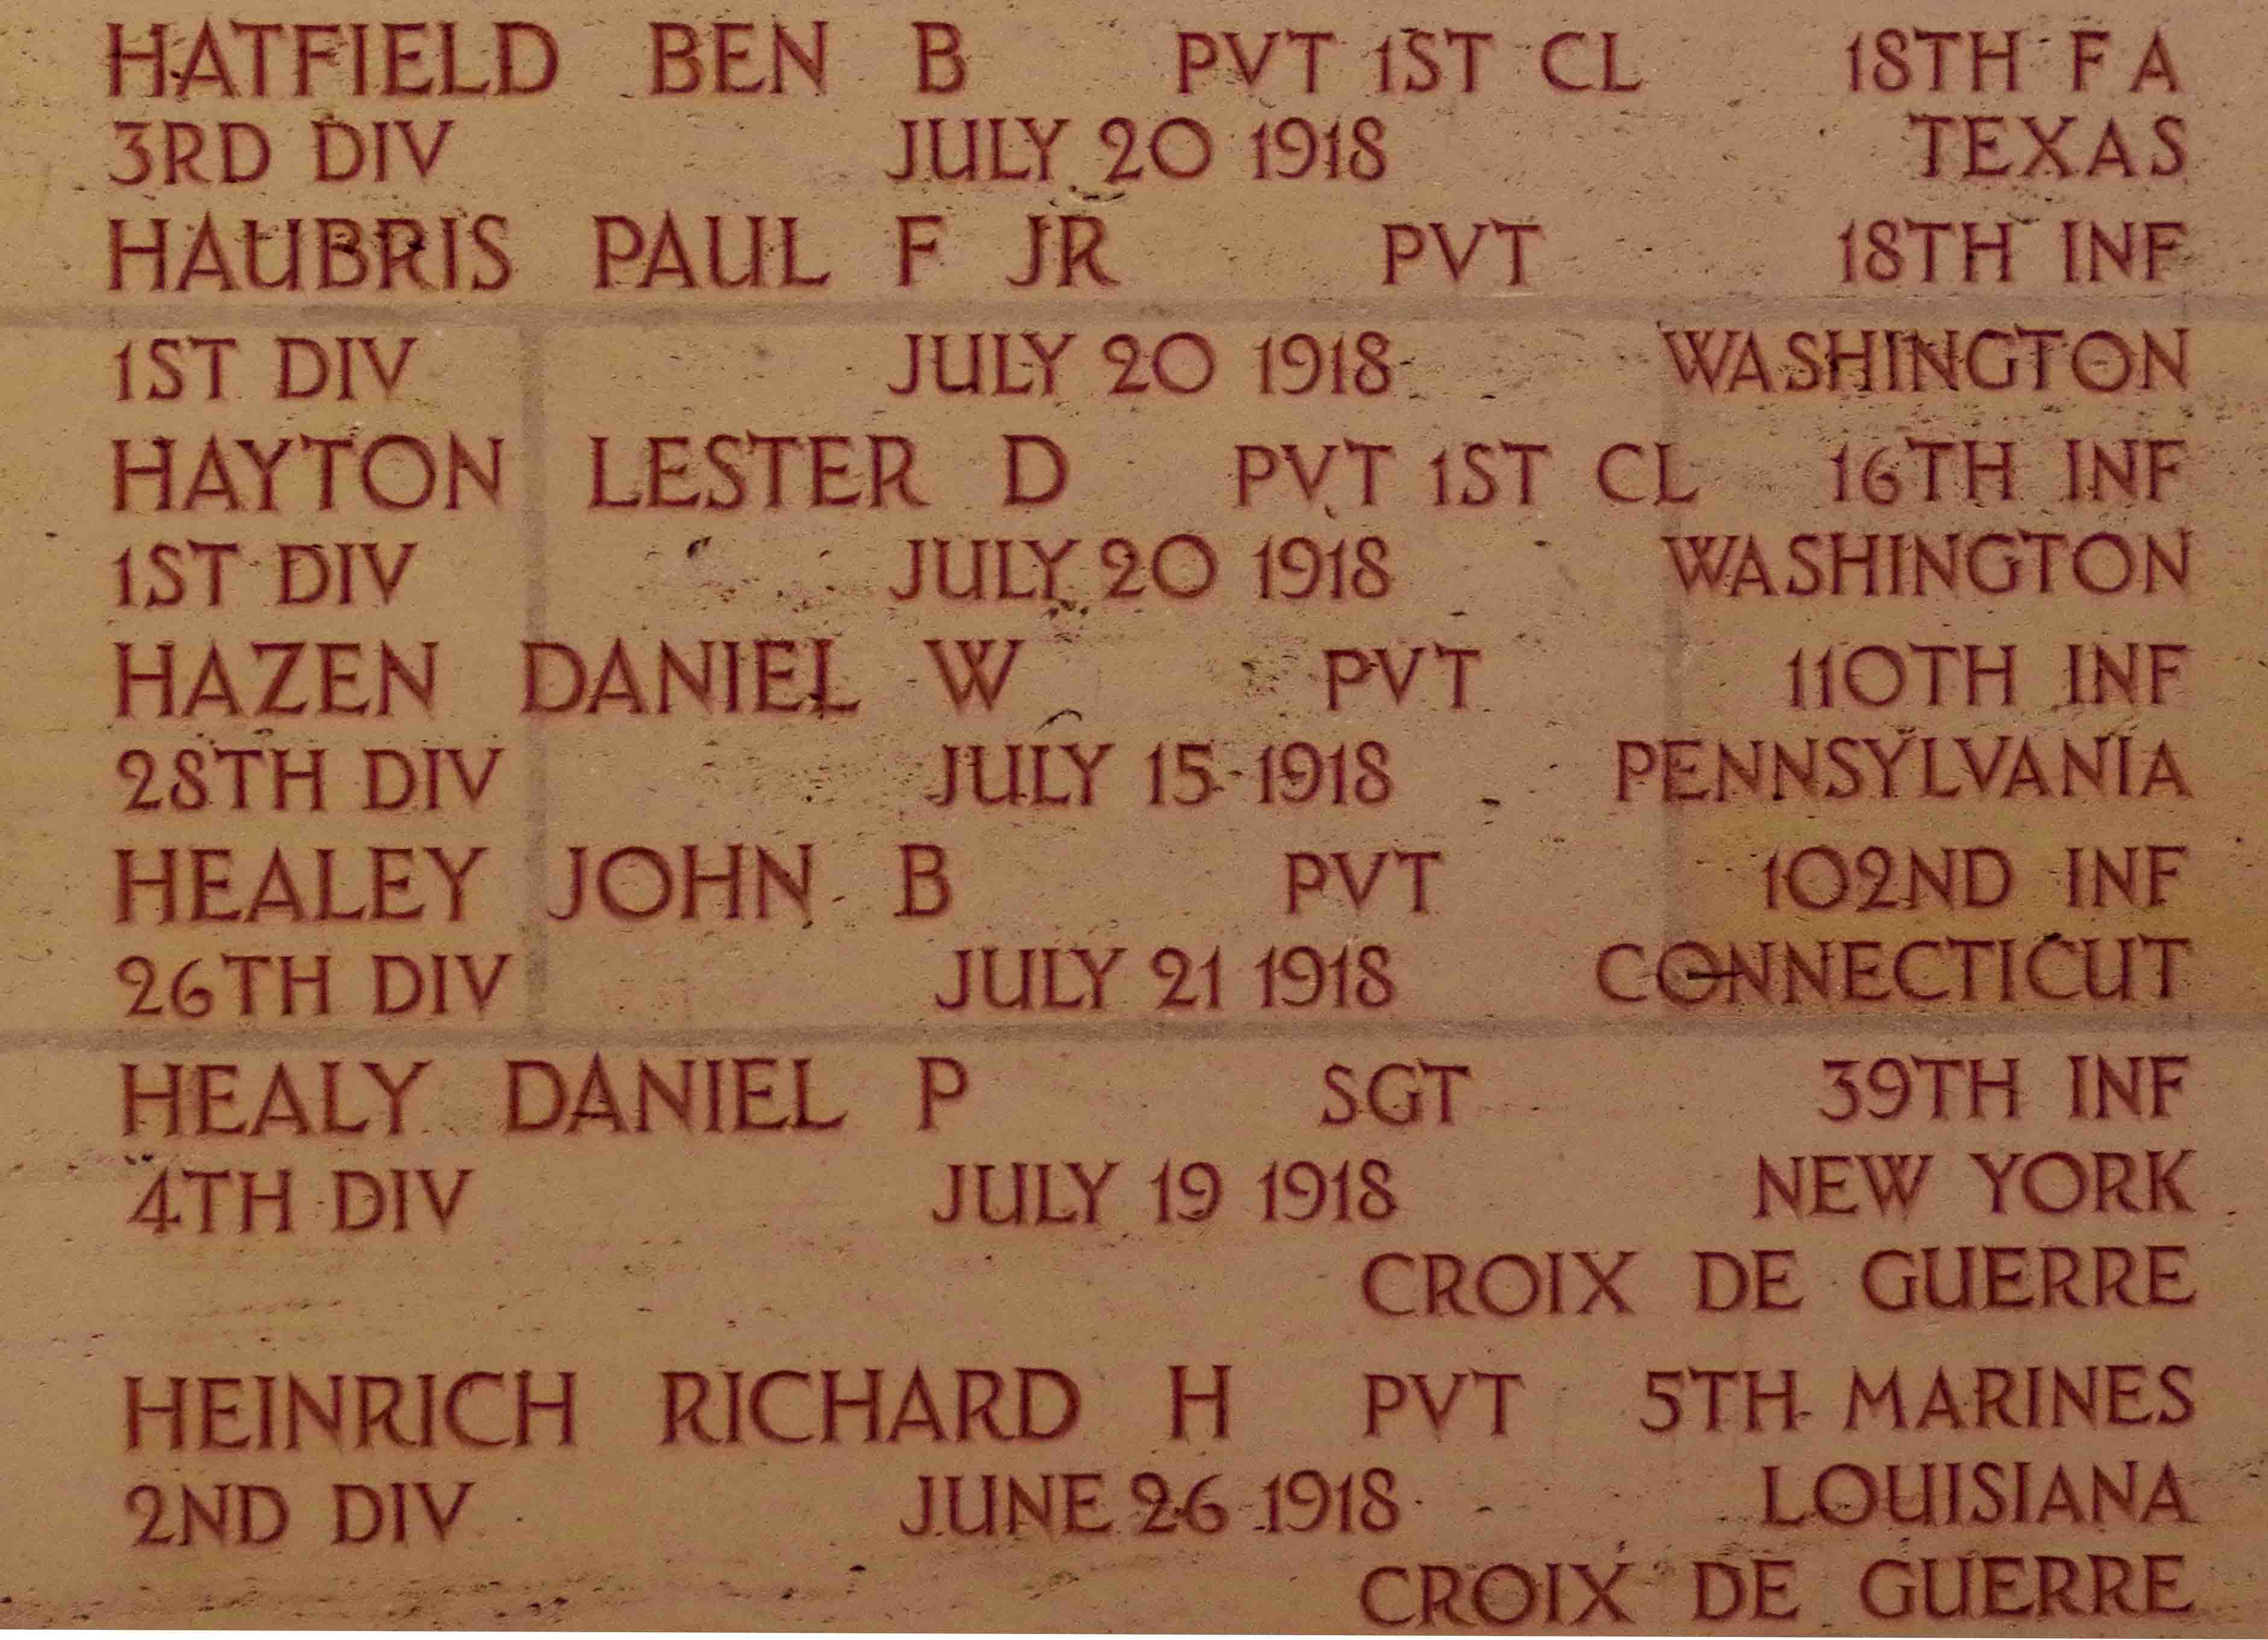 HATFIELD BEN B PVT 1ST CL 18TH F A
3RD DIV JULY 20 1918 TEXAS
HAUBRIS PAUL F JR PVT 18TH INF
1ST DIV JULY 20 1918 WASHINGTON
HAYTON LESTER D PVT 1ST CL 16TH INF
1ST DIV JULY 20 1918 WASHINGTON
HAZEN DANIEL W PVT 110TH INF
28TH DIV JULY 15 1918 PENNSYLVANIA
HEALEY JOHN B PVT 102ND INF
26TH DIV JULY 21 1918 CONNECTICUT
HEALY DANIEL P SGT 39TH INF
4TH DIV JULY 19 1918 NEW YORK
CROIX DE GUERRE
HEINRICH RICHARD H PVT 5TH MARINES
2ND DIV JUNE 26 1918 LOUISIANA
CROIX DE GUERRE